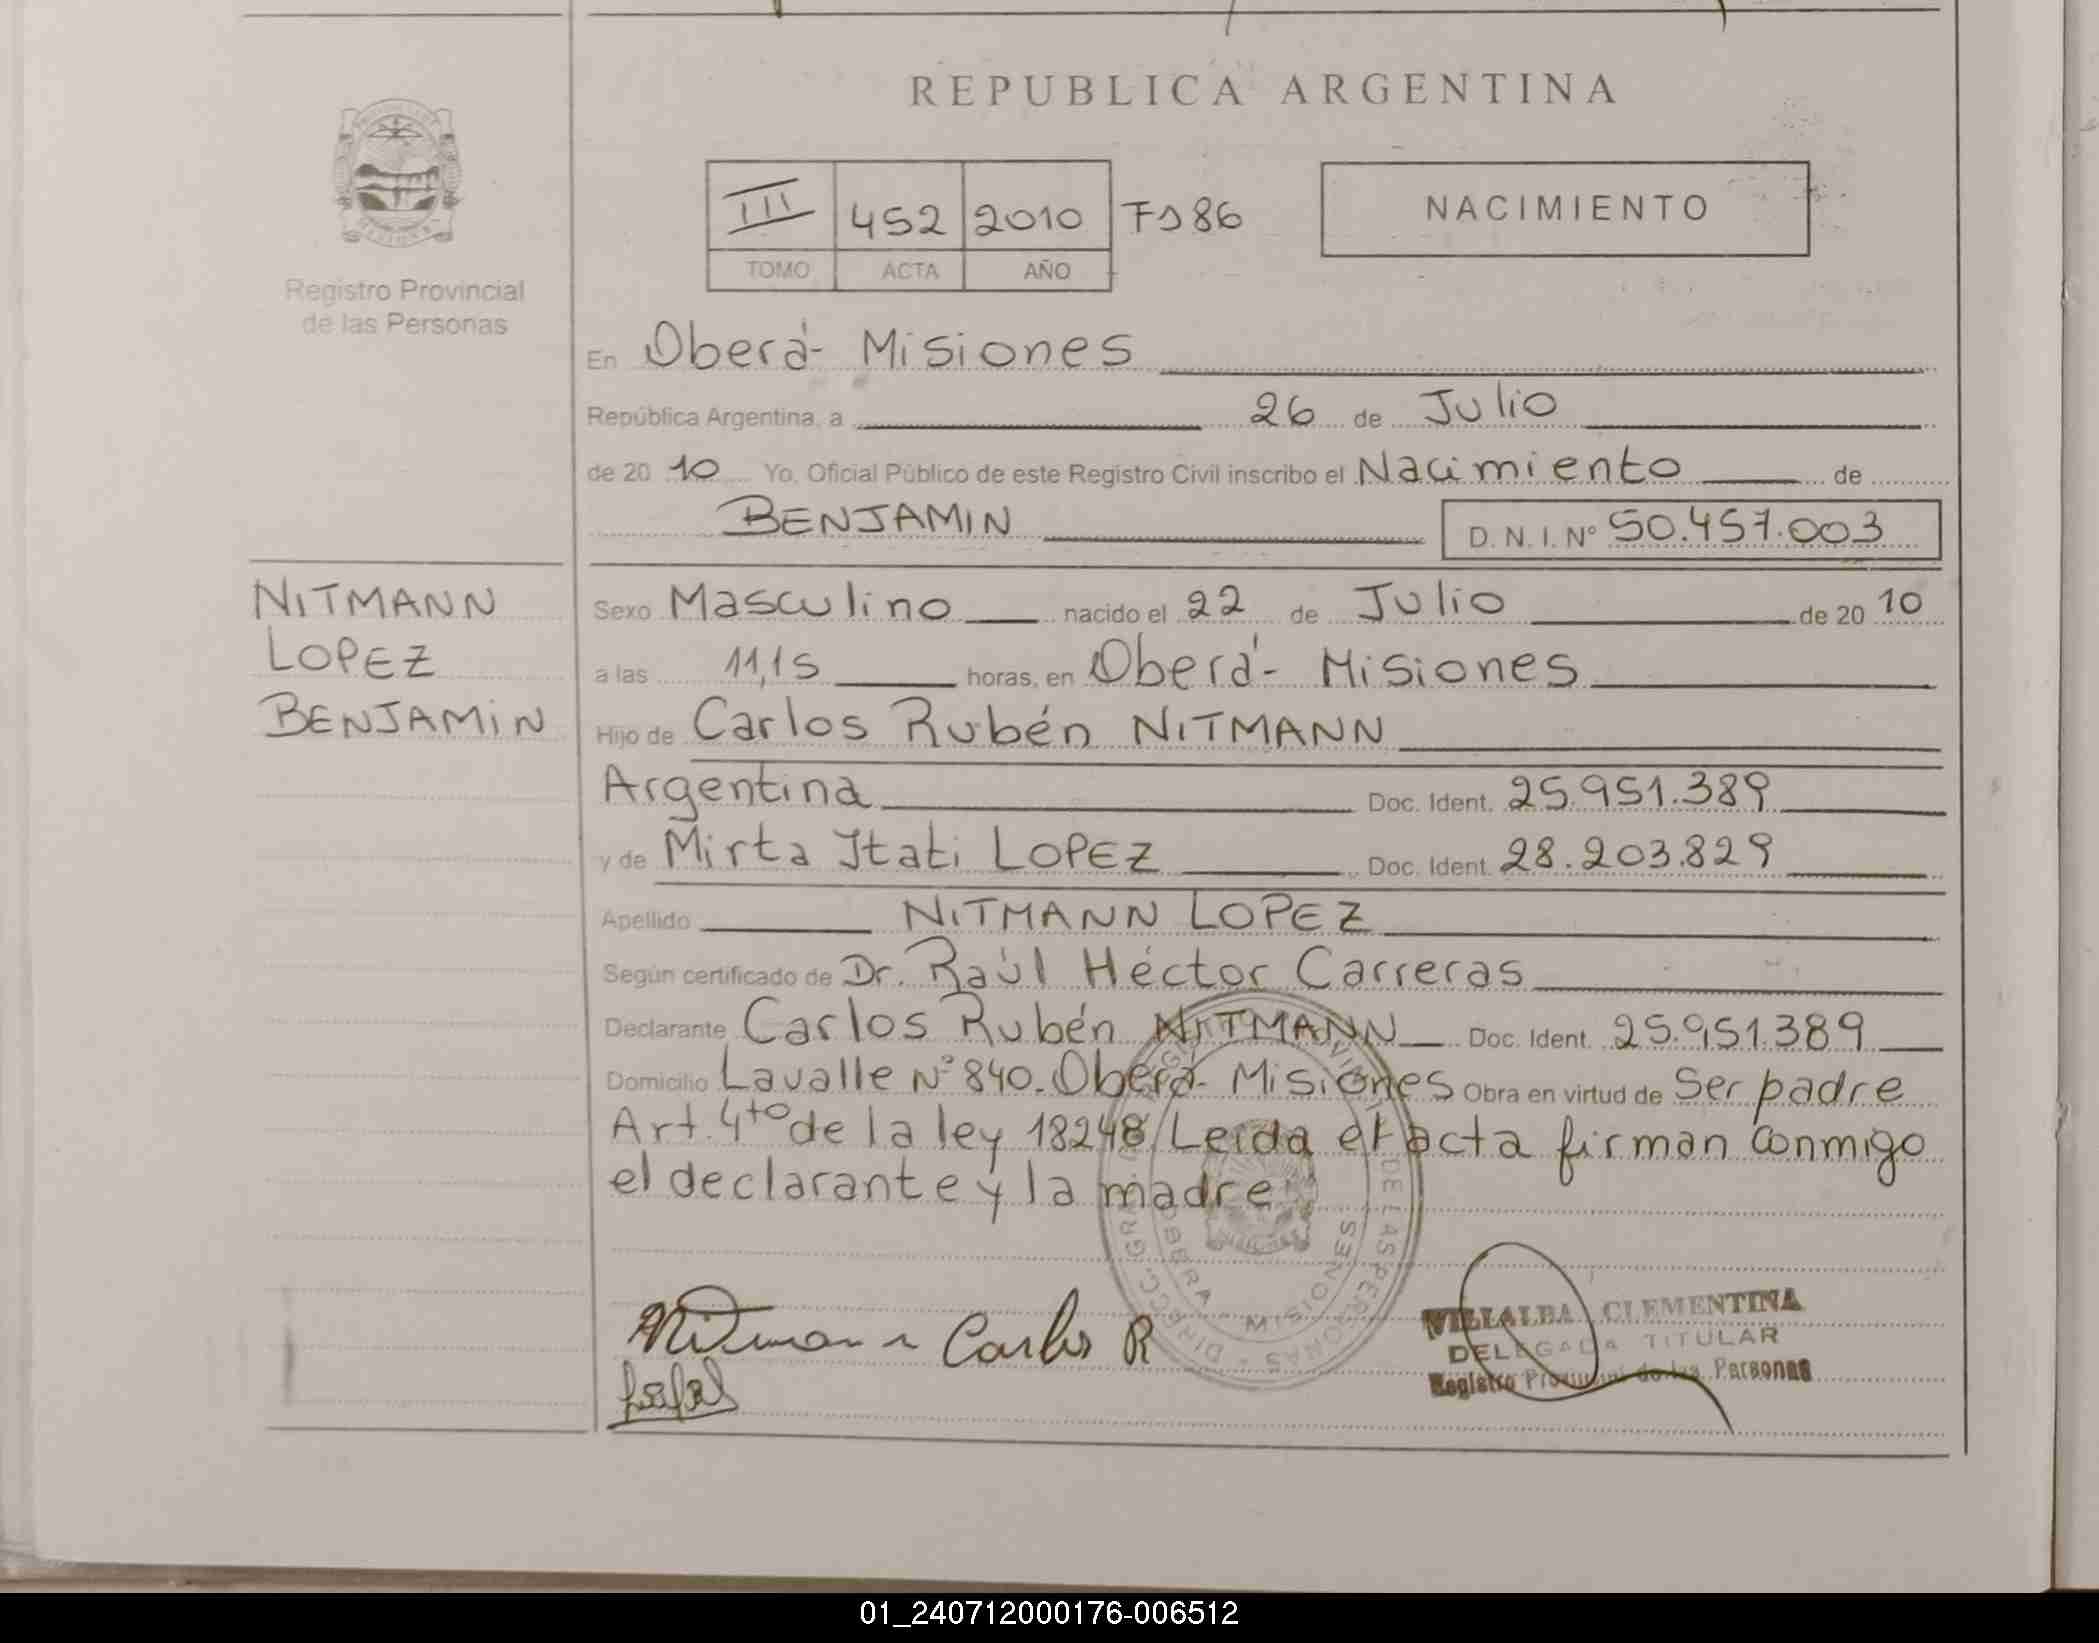 REPUBLICA ARGENTINA
III 452 2010 Fº 86
TOMO ACTA AÑO
NACIMIENTO
Registro Provincial
de las Personas
En Oberá- Misiones
República Argentina, a 26 de Julio
de 20 10 Yo, Oficial Público de este Registro Civil inscribo el Nacimiento de
BENJAMIN D. N. I. Nº 50.457.003
NITMANN
LOPEZ
BENJAMIN
Sexo Masculino nacido el 22 de Julio de 20 10
a las 11,15 horas, en Oberá- Misiones
Hijo de Carlos Rubén NITMANN
Argentina Doc. Ident. 25.951.389
y de Mirta Itati LOPEZ Doc. Ident. 28.203.829
Apellido NITMANN LOPEZ
Según certificado de Dr. Raúl Héctor Carreras
Declarante Carlos Rubén NITMANN Doc. Ident. 25.951.389
Domicilio Lavalle Nº 840. Oberá- Misiones Obra en virtud de Ser padre
Art. 4to de la ley 18248/ Leida el acta firman conmigo
el declarante y la madre
Nitmann Carlos R
VILLALBA CLEMENTINA
DELEGADA TITULAR
Registro Provincial de las Personas
OBERA - MISIONES
01_240712000176-006512